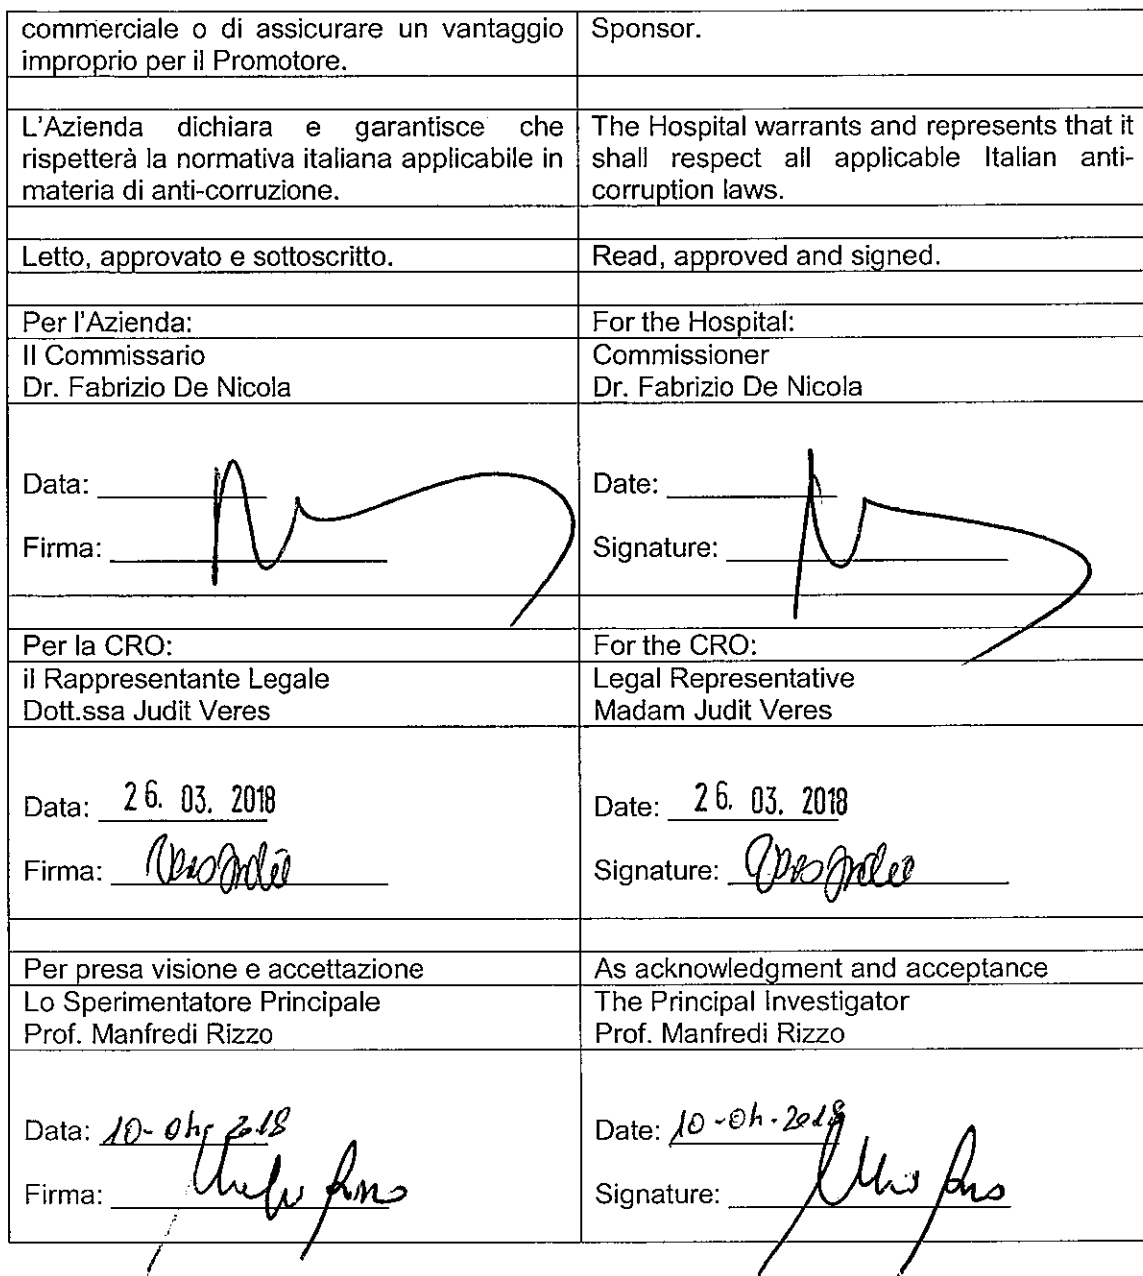 commerciale o di assicurare un vantaggio
improprio per il Promotore.
Sponsor.
L'Azienda dichiara e garantisce che
rispetterà la normativa italiana applicabile in
materia di anti-corruzione.
The Hospital warrants and represents that it
shall respect all applicable Italian anti-
corruption laws.
Letto, approvato e sottoscritto.
Read, approved and signed.
Per l'Azienda:
For the Hospital:
Il Commissario
Dr. Fabrizio De Nicola
Commissioner
Dr. Fabrizio De Nicola
Data:
Firma:
Date:
Signature:
Per la CRO:
For the CRO:
il Rappresentante Legale
Dott.ssa Judit Veres
Legal Representative
Madam Judit Veres
Data: 26. 03. 2018
Firma:
Date: 26. 03. 2018
Signature:
Per presa visione e accettazione
As acknowledgment and acceptance
Lo Sperimentatore Principale
Prof. Manfredi Rizzo
The Principal Investigator
Prof. Manfredi Rizzo
Data: 10-04-2018
Firma:
Date: 10-04-2018
Signature: